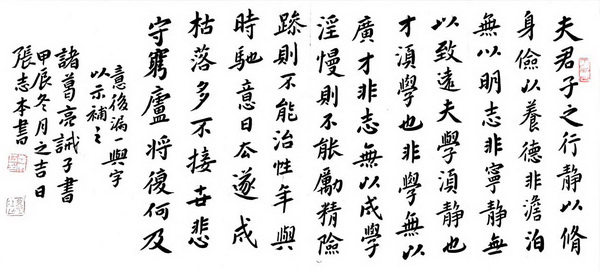 夫君子之行静以脩
身儉以養德非澹泊
無以明志非寧静無
以致遠夫學須静也
才須學也非學無以
廣才非志無以成學
淫慢則不能勵精險
躁則不能治性年與
時馳意日去遂成
枯落多不接世悲
守窮廬將復何及
意後漏一與字
以示補之
諸葛亮誡子書
甲辰冬月之吉日
張志本書